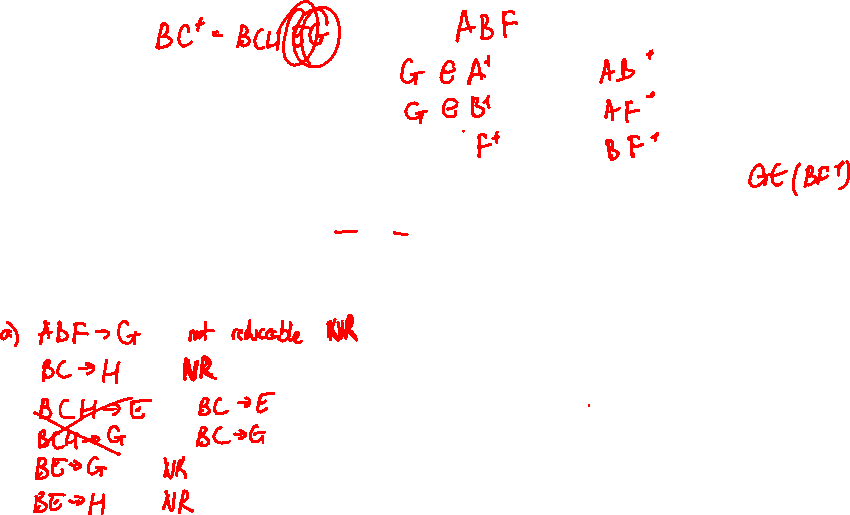 BC⁺ = BCH EG
ABF
G ∈ A⁺ AB⁺
G ∈ B⁺ AF⁺
F⁺ BF⁺
G∈(BF⁺)
a) ABF → G not reducable NR
BC → H NR
BCH → E BC → E
BCH → G BC → G
BE → G NR
BE → H NR